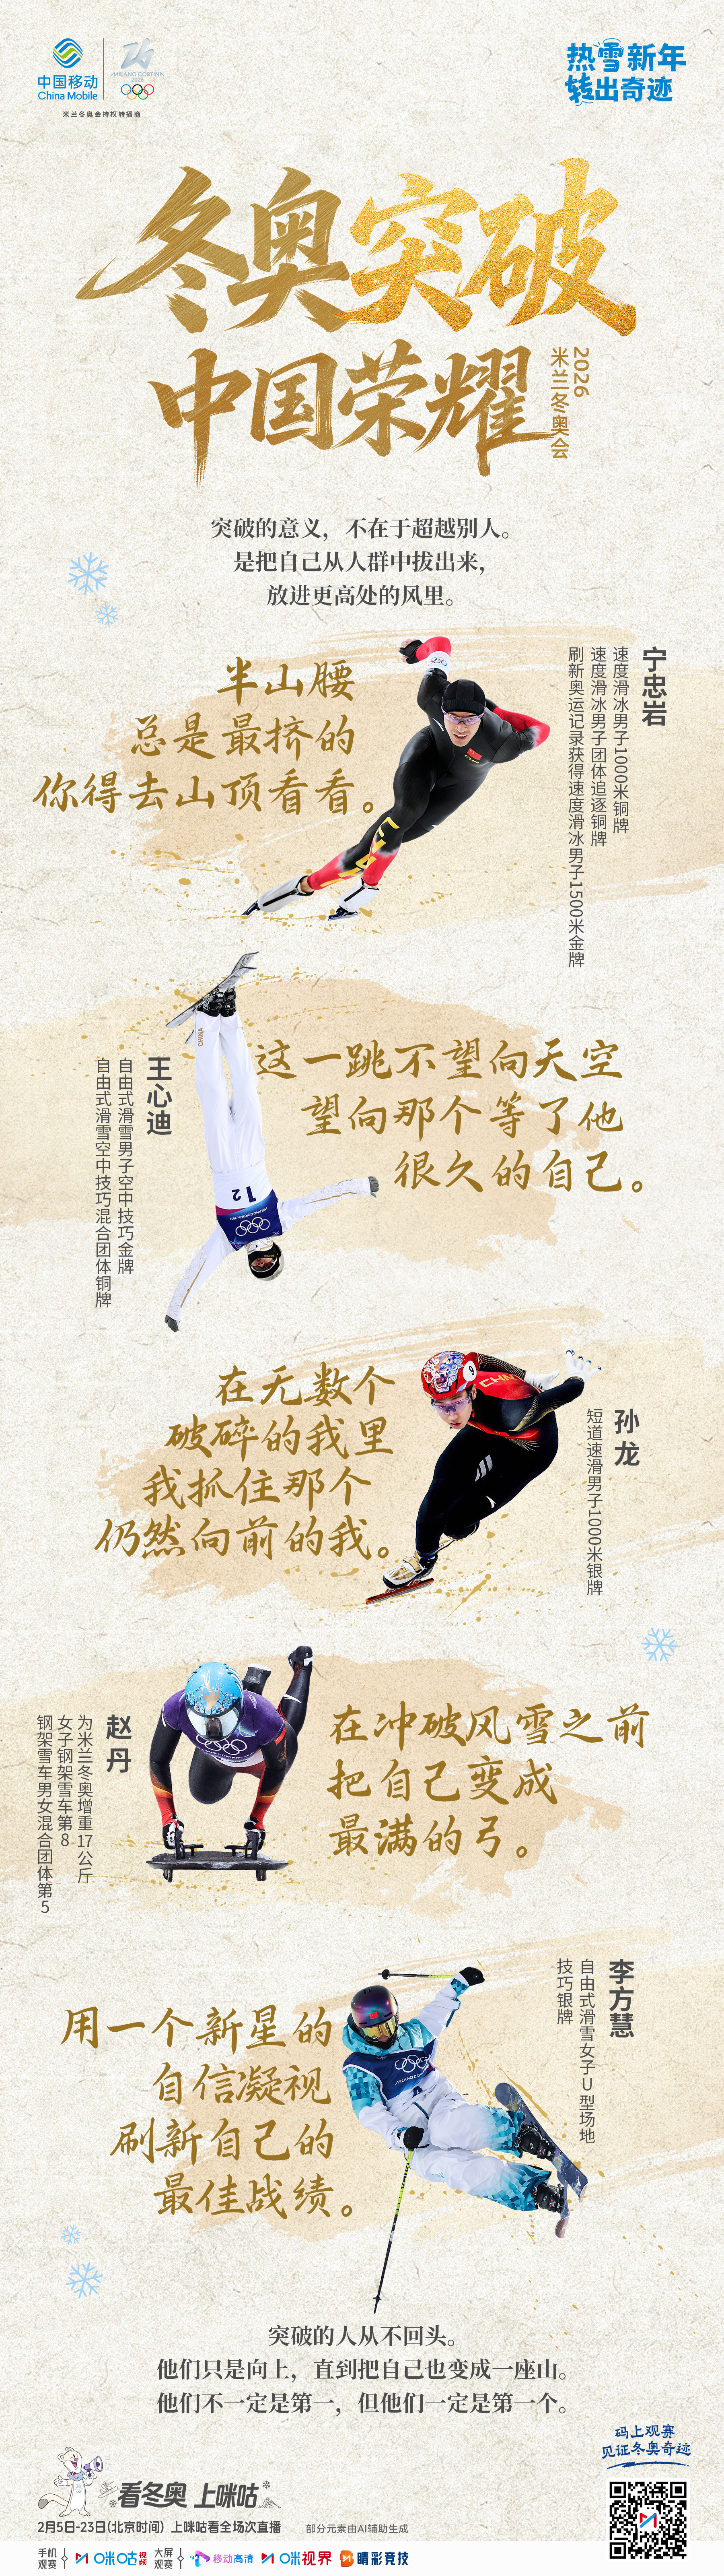 中国移动
China Mobile
MILANO CORTINA
2026
米兰冬奥会持权转播商
热雪新年
转出奇迹
冬奥突破
中国荣耀
2026
米兰冬奥会
突破的意义，不在于超越别人。
是把自己从人群中拔出来，
放进更高处的风里。
半山腰
总是最挤的
你得去山顶看看。
宁忠岩
速度滑冰男子1000米铜牌
速度滑冰男子团体追逐铜牌
刷新奥运记录获得速度滑冰男子1500米金牌
CHINA
这一跳不望向天空
望向那个等了他
很久的自己。
王心迪
自由式滑雪男子空中技巧金牌
自由式滑雪空中技巧混合团体铜牌
12
在无数个
破碎的我里
我抓住那个
仍然向前的我。
孙龙
短道速滑男子1000米银牌
在冲破风雪之前
把自己变成
最满的弓。
赵丹
为米兰冬奥增重17公斤
女子钢架雪车第8
钢架雪车男女混合团体第5
用一个新星的
自信凝视
刷新自己的
最佳战绩。
李方慧
自由式滑雪女子U型场地
技巧银牌
突破的人从不回头。
他们只是向上，直到把自己也变成一座山。
他们不一定是第一，但他们一定是第一个。
码上观赛
见证冬奥奇迹
看冬奥 上咪咕
2月5日-23日(北京时间) 上咪咕看全场次直播
部分元素由AI辅助生成
手机观赛 咪咕视频 大屏观赛 移动高清 咪视界 睛彩竞技